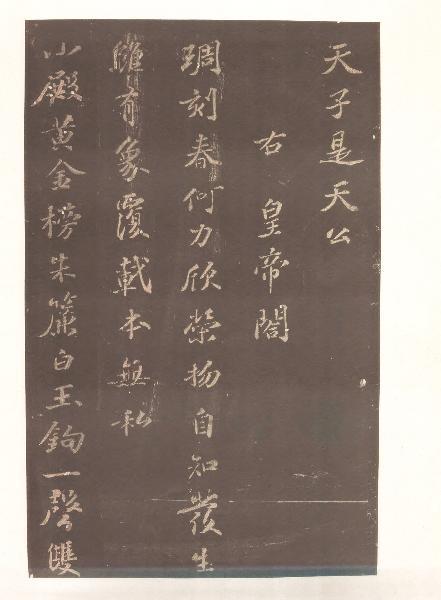 天子是天公
右皇帝閤
琱刻春何力欣榮物自知發生
雖有象覆載本無私
小殿黃金榜朱簾白玉鉤一聲雙